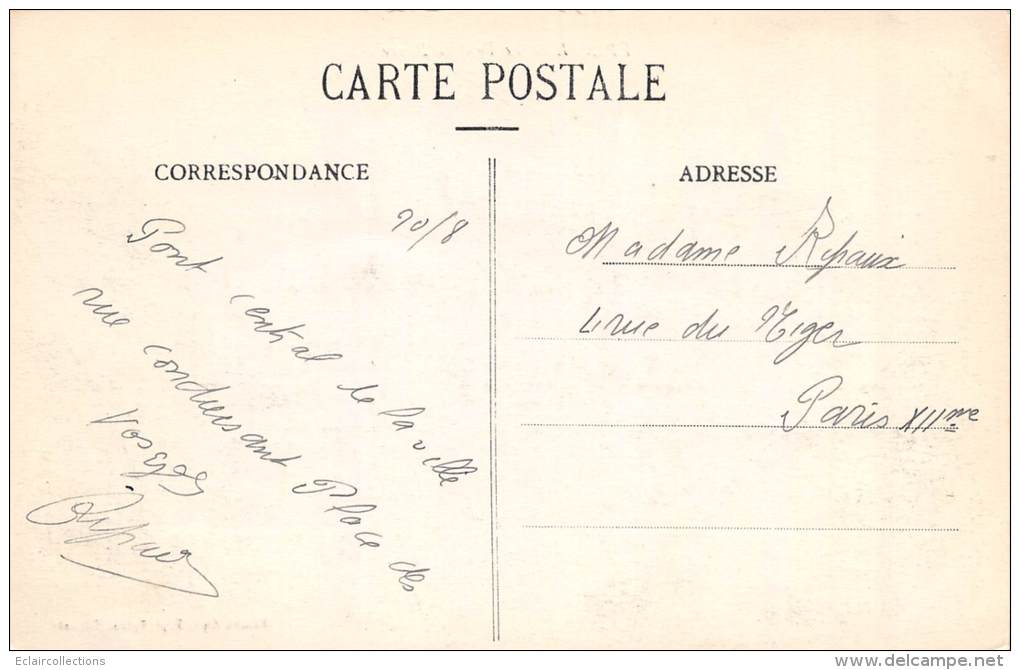 CARTE POSTALE
CORRESPONDANCE
ADRESSE
20/8
Pont central de la ville
rue conduisant Place des
Vosges
Madame
4 rue du Niger
Paris XIIme
Eclaircollections
delcampe.net